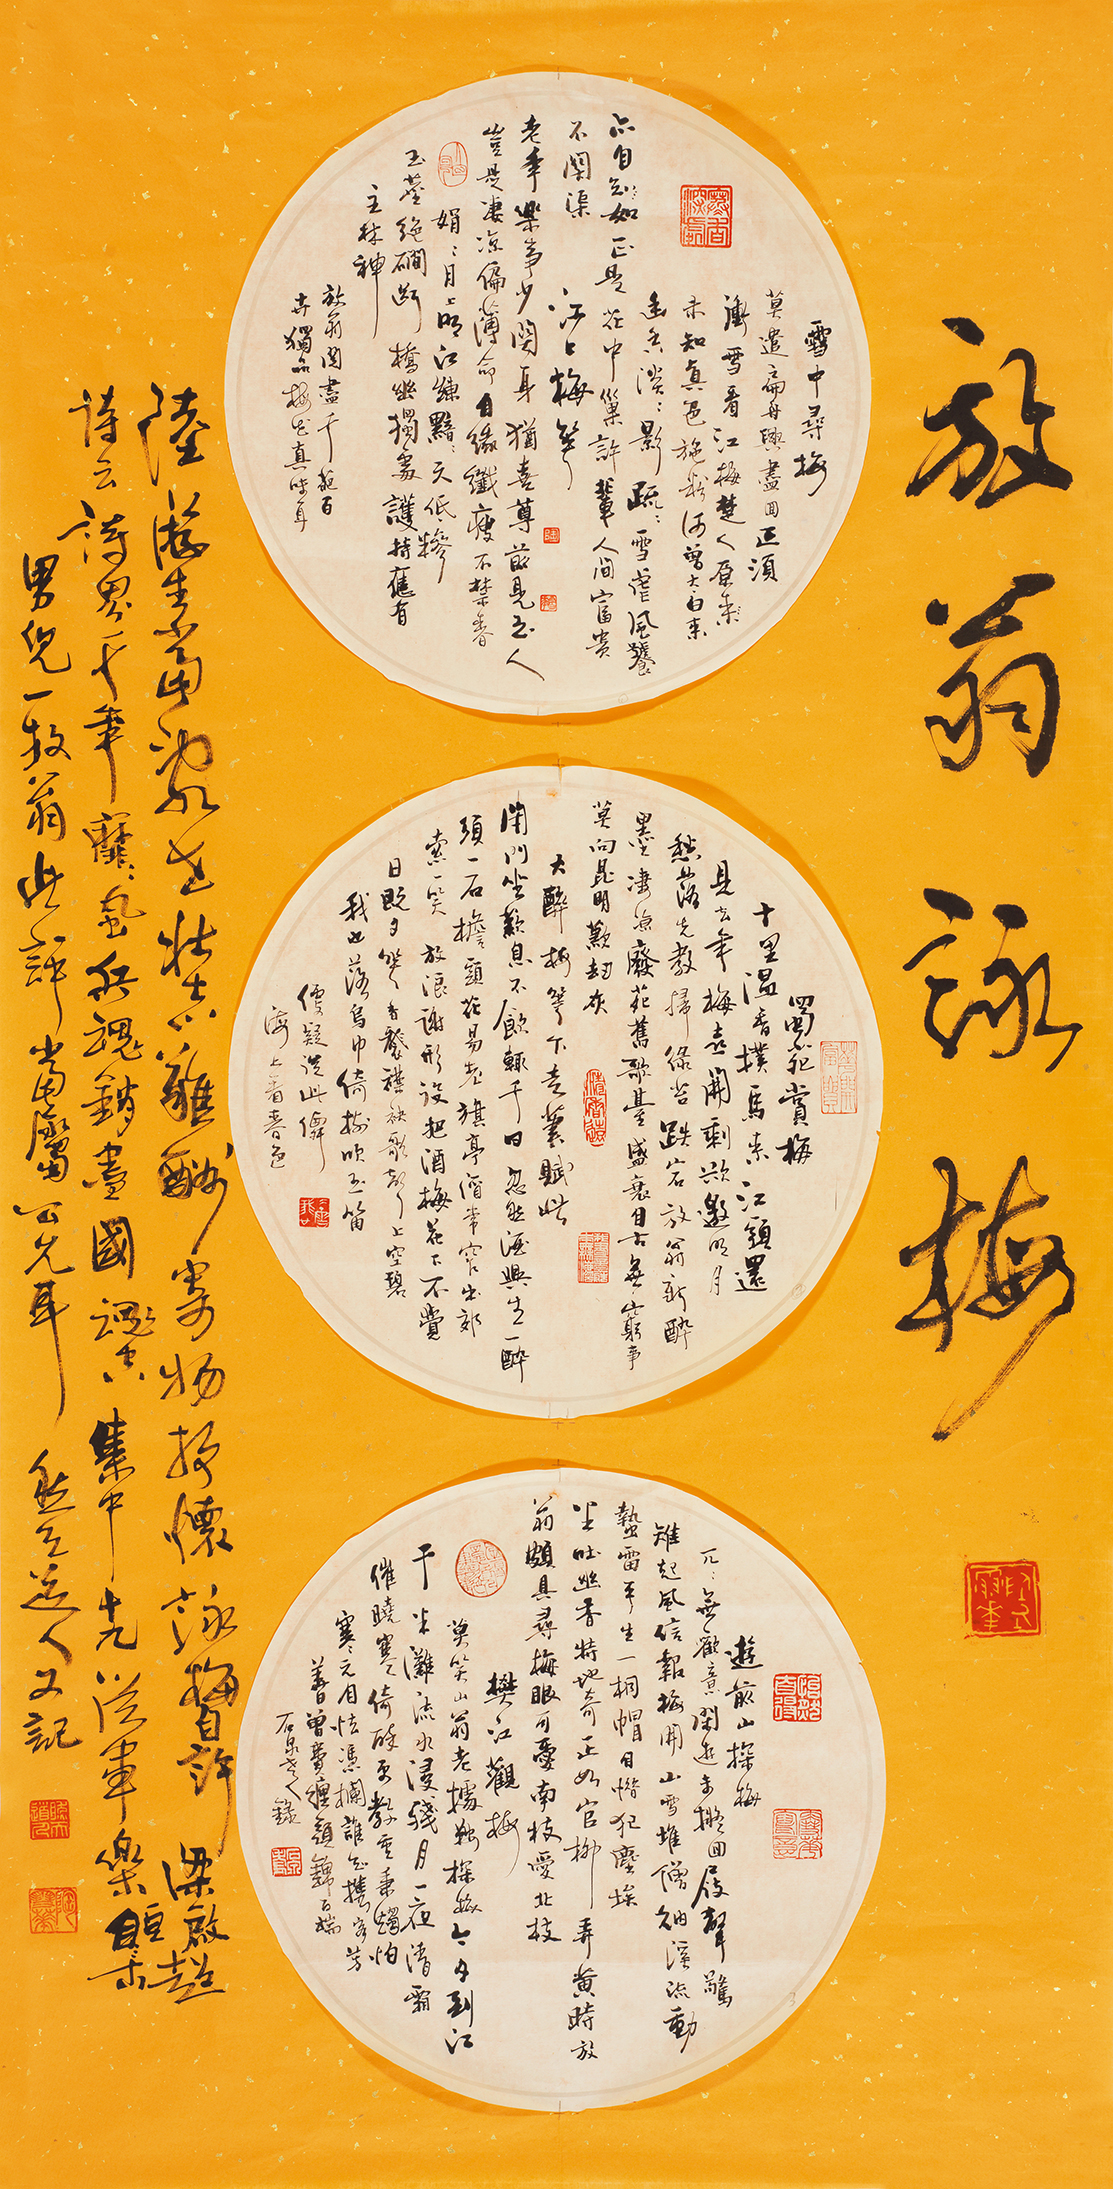 放翁詠梅
雪中尋梅
莫遣扁舟興盡回正須
衝雪看江梅楚人原未
未知真色施粉何曾太白來
幽香淡淡影疏疏雪虐風饕
亦自如正是花中巢許輩人間富貴
不關渠
江上梅花
老來樂事少關身猶喜尊前見玉人
豈是凄涼偏薄命自緣纖瘦不禁春
娟娟月上明江練黯黯天低糝
玉塵絕磵斷橋幽獨處護持應有
主林神
放翁閱盡千葩百
卉獨品梅花真味耳
蜀苑賞梅
十里溫香撲馬來江頭還
見去年梅喜開剩欲邀明月
愁落先教掃綠苔跌宕放翁新醉
墨淒涼廢苑舊歌臺盛衰自古無窮事
莫向昆明歎劫灰
大醉梅花下走筆賦此
閉門坐歎息不飲輒千日忽然酒興生一醉
須一石檐頭花易老旗亭酒常窄出郊
索一笑放浪謝形役把酒梅花下不覺
日既夕花香襲襟袂歌聲上空碧
我亦落烏巾倚樹吹玉笛
優疑從此僊
海上看春色
遊前山探梅
兀兀無歡意閑遊未擬回屐聲驚
雉起風信報梅開山雪堆僧衲溪流動
蟄雷平生一桐帽自惜犯塵埃
半吐幽香特地奇正如官柳弄黃時放
翁頗具尋梅眼可愛南枝愛北枝
樊江觀梅
莫笑山翁老據鞍探梅今夕到江
干半灘流水浸殘月一夜清霜
催曉寒倚醉更教重秉燭怕
寒元自怯憑欄誰知攜客芳
華日曾費纏頭錦百端
石泉老人錄
陸游生當亂世壯志難酬寄物抒懷詠梅自許梁啟超
詩云詩界千年靡靡風兵魂銷盡國魂空集中十九從軍樂亙古
男兒一放翁此評當屬公允耳 道人又記